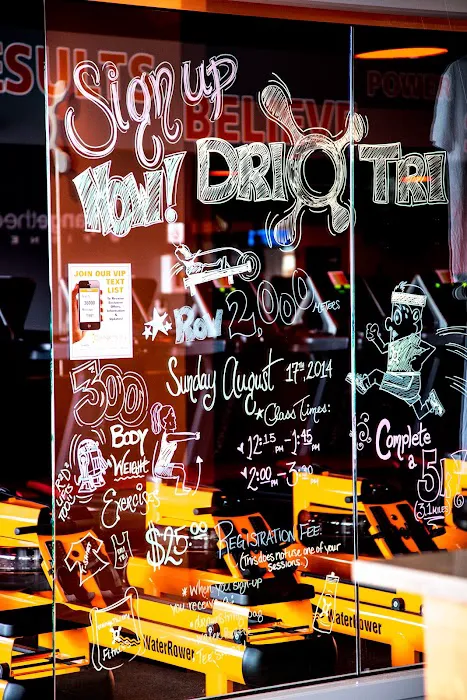 RESULTS
BELIEVE
POWER
Sign up
NOW!
DRI TRI
JOIN OUR VIP
TEXT
LIST
Row 2,000 METERS
Sunday August 17th, 2014
Class Times:
12:15 PM - 1:45 PM
2:00 PM -
300
BODY
WEIGHT
Exercises
Complete
a 5K
(3.1 MILES)
$25.00 REGISTRATION FEE
(This does not use one of your
sessions.)
When you sign-up
you receive:
drawstring bag
WaterRower
WaterRower